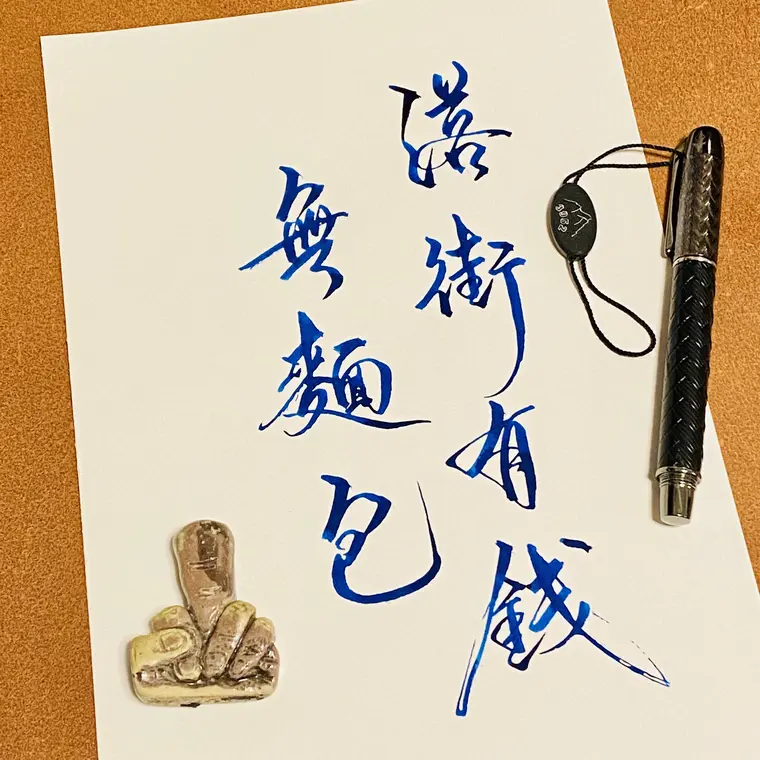 落街有錢
無麵包